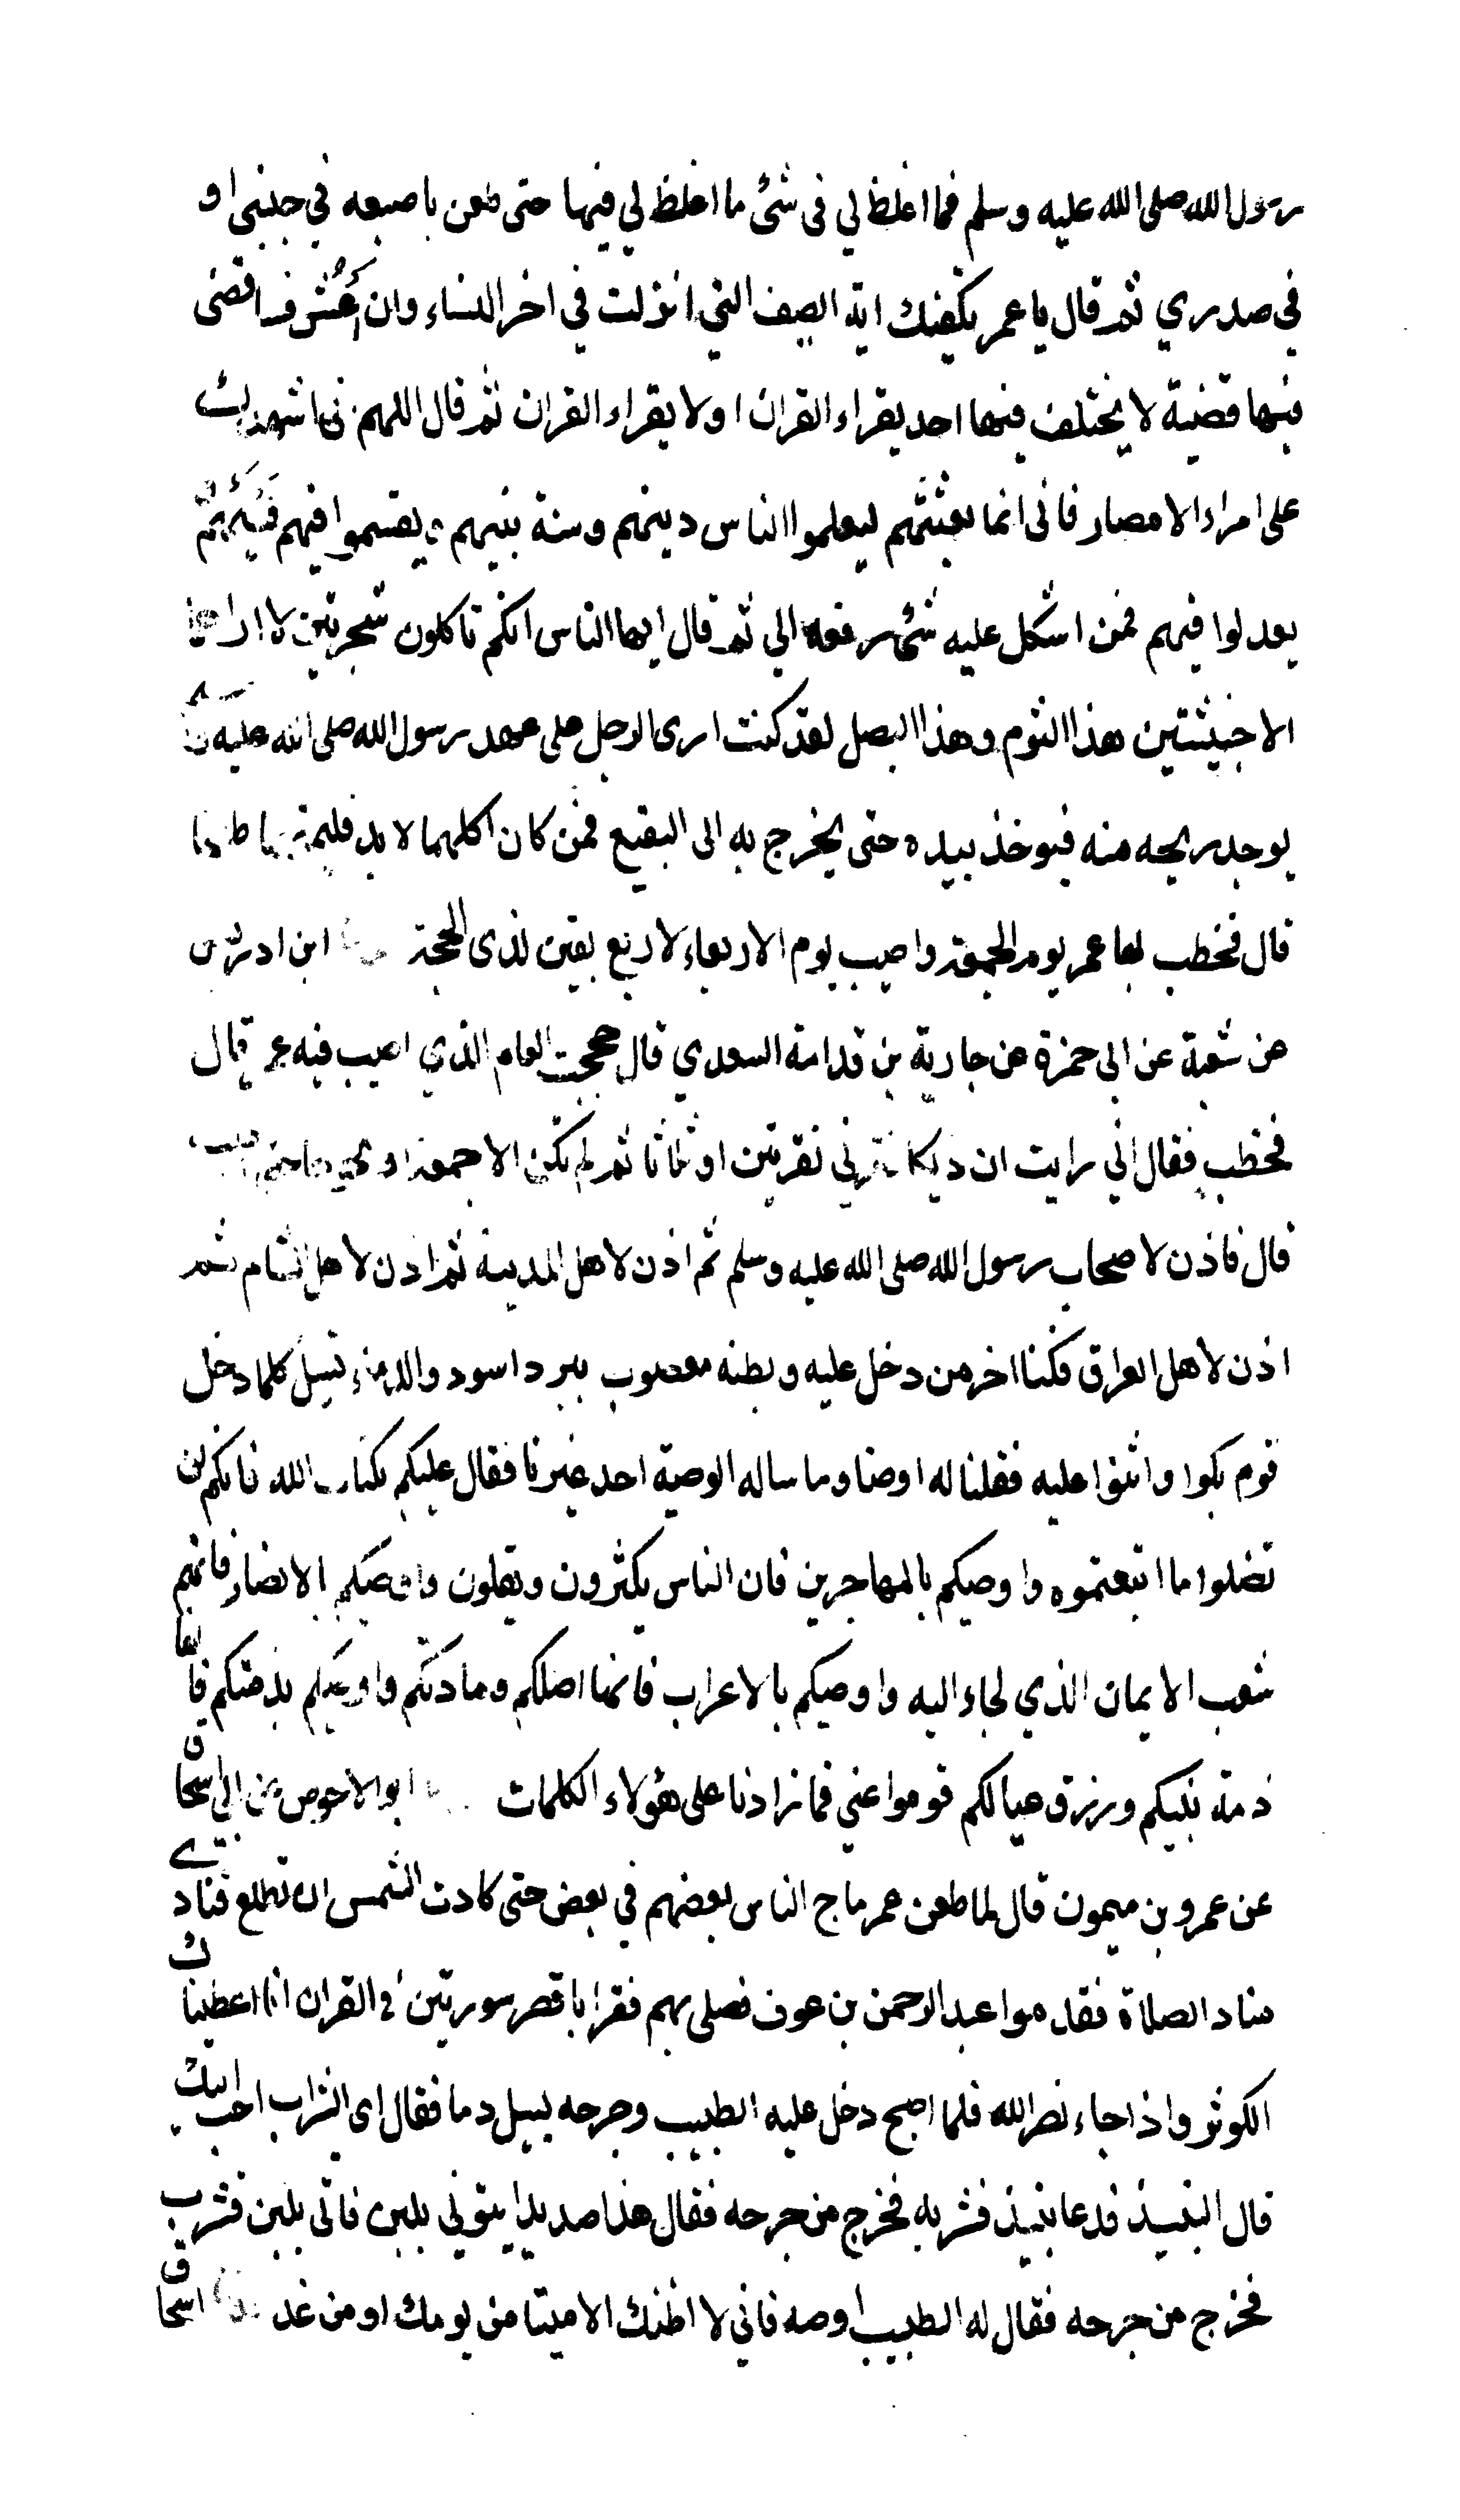 رسول الله صلى الله عليه وسلم فما اغلظ لي فى شئ ما اغلظ لي فيها حتى طعن باصبعه في جنبي او
في صدري ثم قال يا عمر يكفيك اية الصيف التي انزلت في اخر النساء وان اَعُش فسا قضى
فيها قضية لا يختلف فيها احد يقراء القران او لا يقراء القران ثم قال اللهم اشهدك
على امراء الامصار فانى انما بعثتهم ليعلموا الناس دينهم وسنة نبيهم ويقسموا فيهم فيئهم
يعدلوا فيهم فمن اشكل عليه شئ رفعه الي ثم قال ايها الناس انكم تاكلون شجرتين لا اراهما
الا خبيثتين هذا الثوم وهذا البصل لقد كنت ارى الرجل على عهد رسول الله صلى الله عليه
يوجد ريحه منه فيوخذ بيده حتى يخرج به الى البقيع فمن كان اكلهما لا بد فليمتهما طبخا
قال فخطب بها عمر يوم الجمعة واصيب يوم الاربعاء لاربع بقين لذى الحجة ابن ادريس
عن شعبة عن ابى حمزة عن جارية بن قدامة السعدي قال حججت العام الذي اصيب فيه عمر قال
فخطب فقال اني رايت ان ديكا نقرني نقرتين او ثلاثا ثم لم تكن الا جمعة او
قال فاذن لاصحاب رسول الله صلى الله عليه وسلم ثم اذن لاهل المدينة ثم اذن لاهل الشام ثم
اذن لاهل العراق فكنا اخر من دخل عليه وبطنه معصوب ببرد اسود والدماء تسيل كلما دخل
قوم بكوا واثنوا عليه فقلنا له اوصنا وما ساله الوصية احد غيرنا فقال عليكم بكتاب الله فانكم لن
تضلوا ما اتبعتموه واوصيكم بالمهاجرين فان الناس يكثرون ويقلون واوصيكم بالانصار فانهم
شعب الايمان الذي لجاء اليه واوصيكم بالاعراب فانها اصلكم ومادتكم واوصيكم بذمتكم فانها
ذمة نبيكم ورزق عيالكم قوموا عني فما زادنا على هؤلاء الكلمات ابو الاحوص عن ابي اسحاق
عن عمرو بن ميمون قال لما طعن عمر ماج الناس بعضهم في بعض حتى كادت الشمس ان تطلع فنادى
مناد الصلاة فقدموا عبد الرحمن بن عوف فصلى بهم فقرا باقصر سورتين في القران انا اعطيناك
الكوثر واذا جاء نصر الله فلما اصبح دخل عليه الطبيب وجرحه يسيل دما فقال اى الشراب احب اليك
قال النبيذ فدعا بنبيذ فشربه فخرج من جرحه فقال هذا صديد ايتوني بلبن فاتى بلبن فشرب
فخرج من جرحه فقال له الطبيب اوصه فاني لا اظنك الا ميتا من يومك او من غد اسحاق